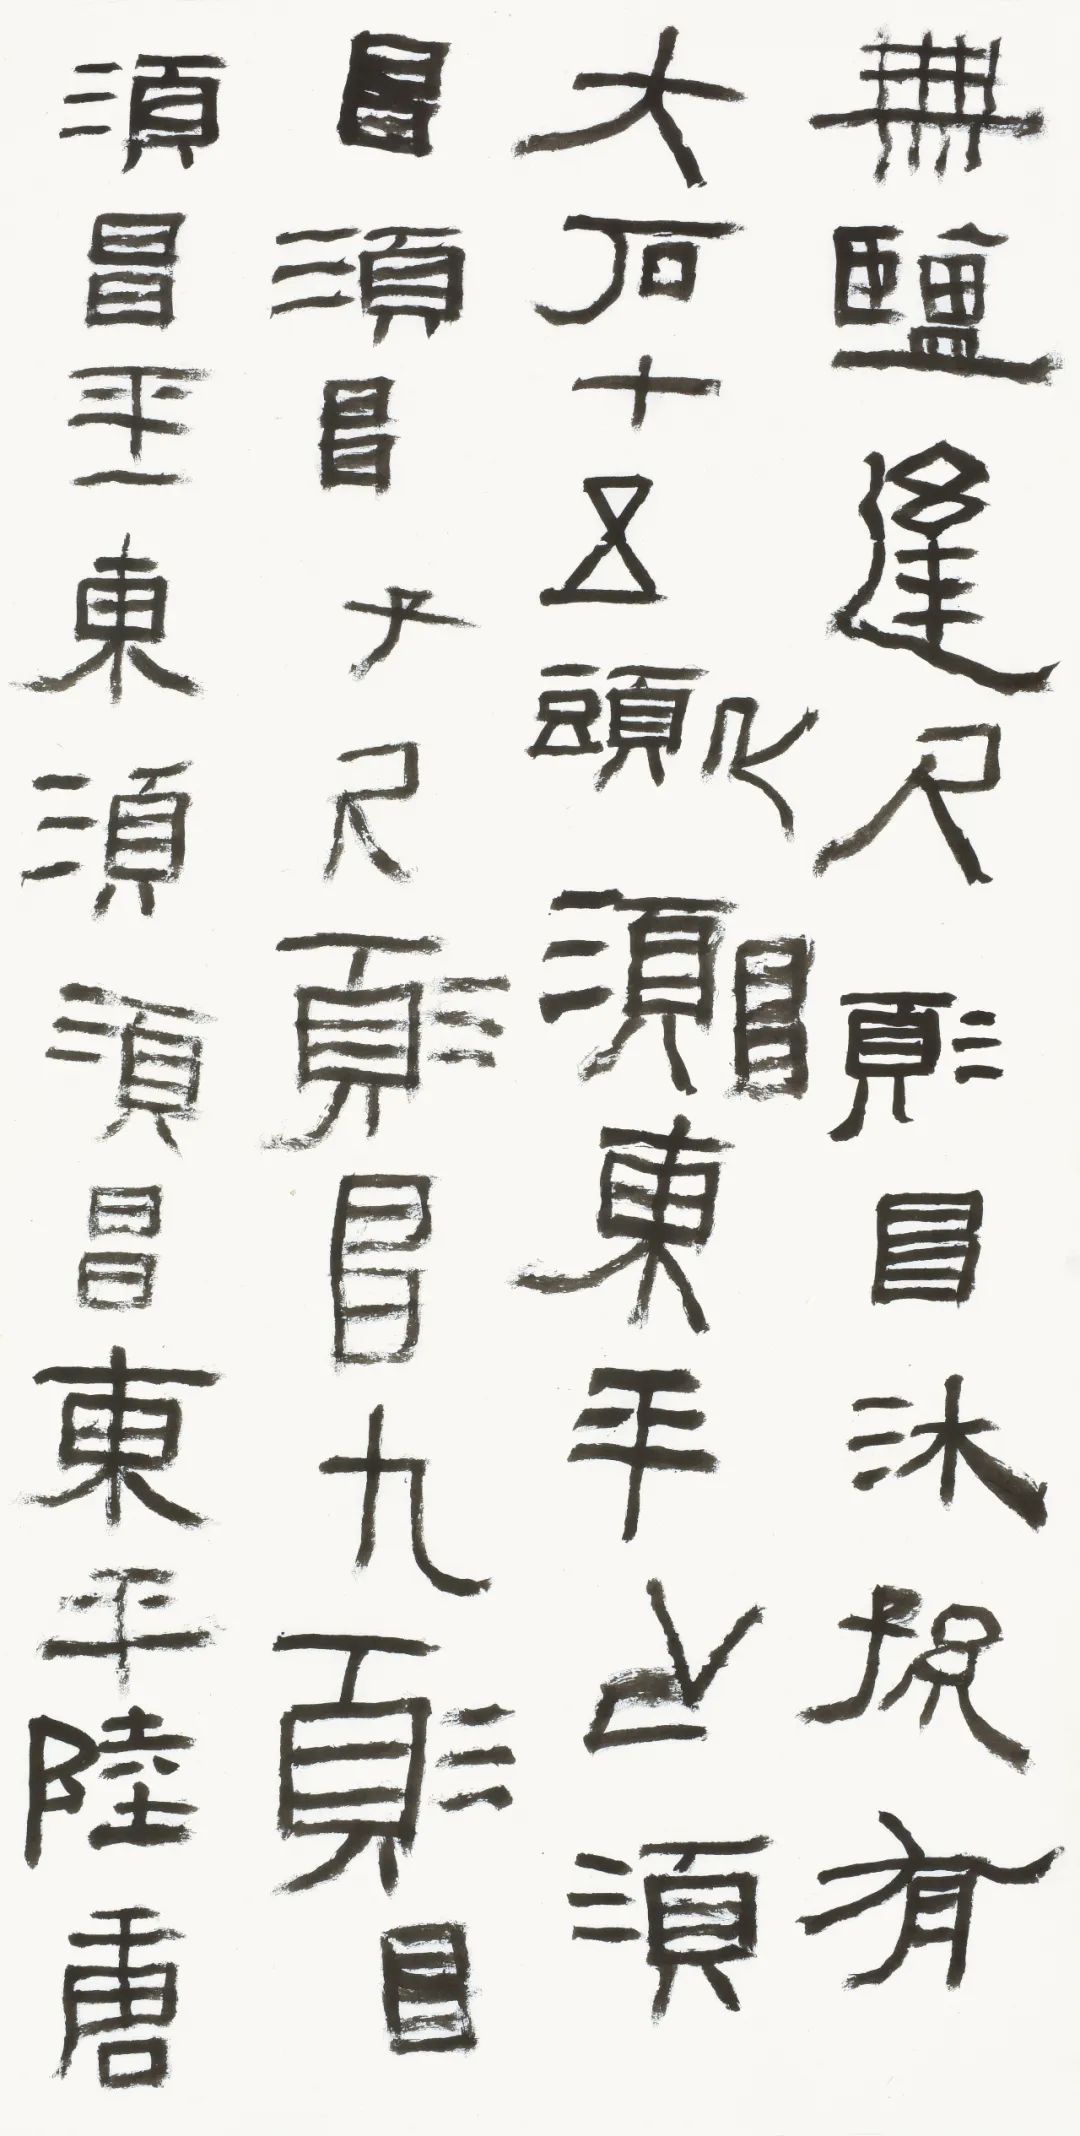 無鹽逢尺須昌沐有
大十五頭須昌東平須
昌須昌尺須昌九須昌
須昌平東須須昌東平陸唐